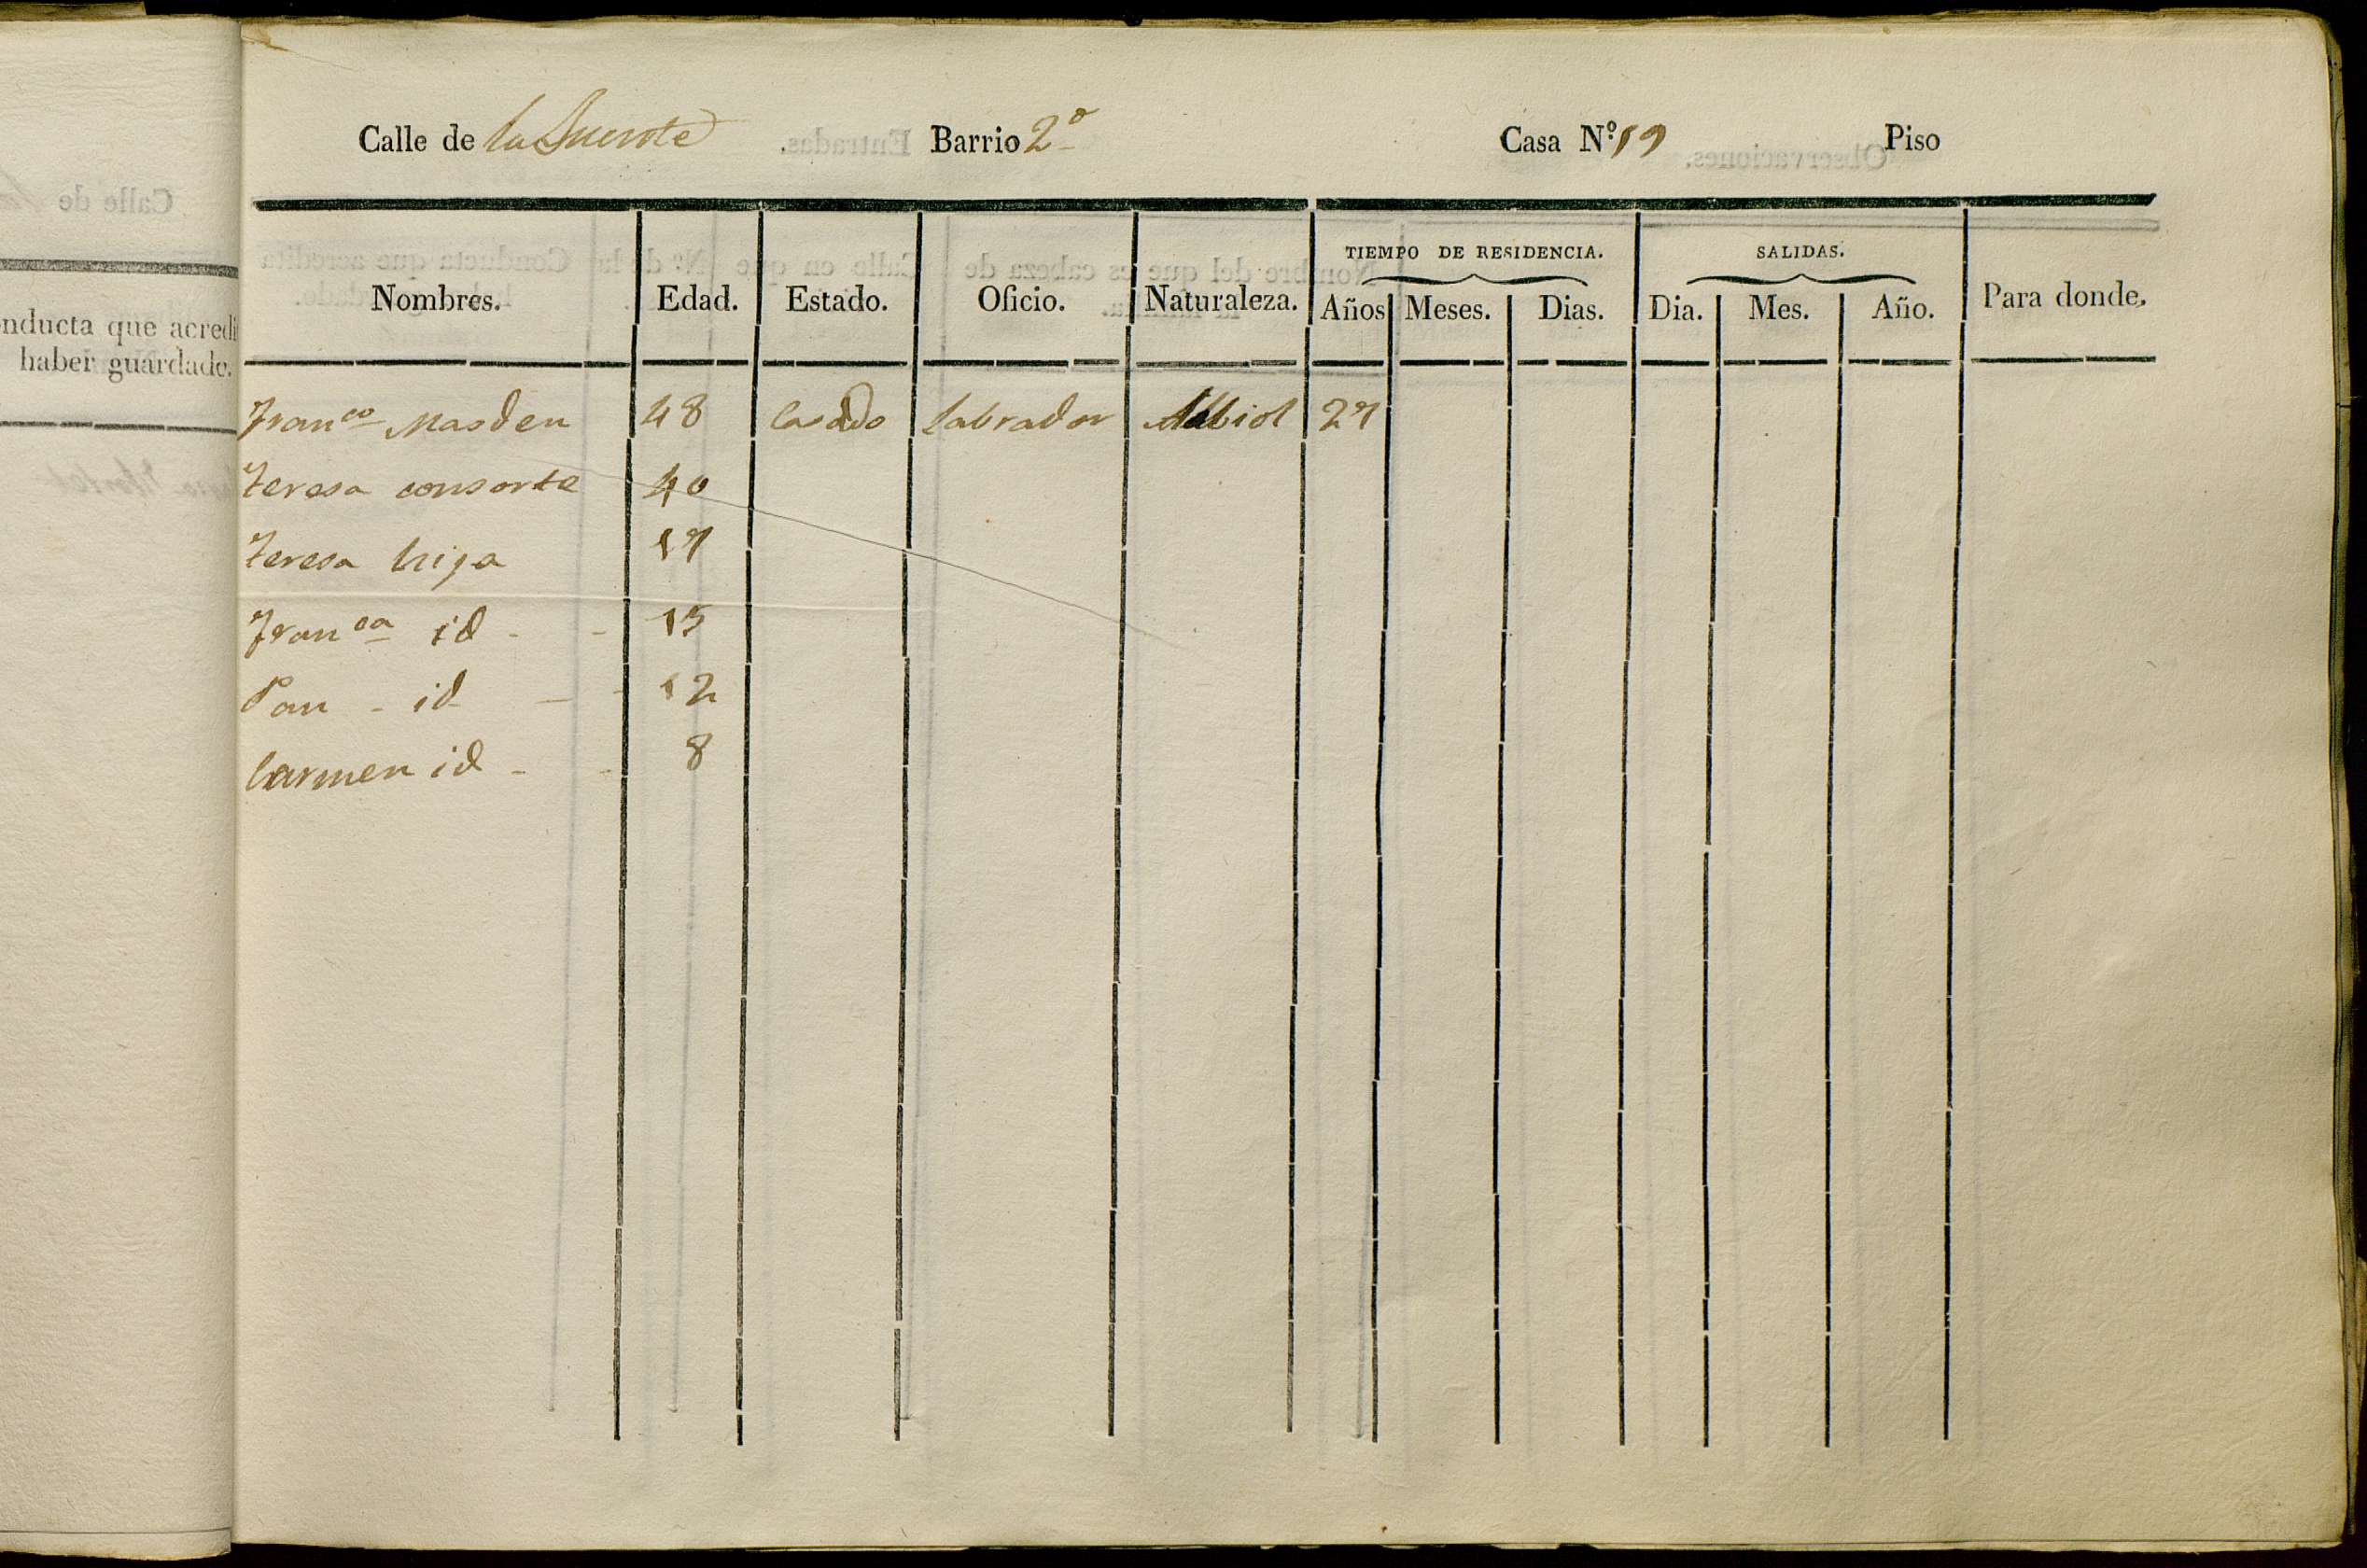 Calle de la Suerte Barrio 2º Casa Nº 19 Piso
TIEMPO DE RESIDENCIA. SALIDAS.
Nombres. Edad. Estado. Oficio. Naturaleza. Años Meses. Dias. Dia. Mes. Año. Para donde.
Franco Masdeu 48 Casado Labrador Albiol 27
Teresa consorte 40
Teresa hija 17
Franca id - - 15
Pau - id - - 12
Carmen id - - 8
Calle de
onducta que acredi
haber guardado.